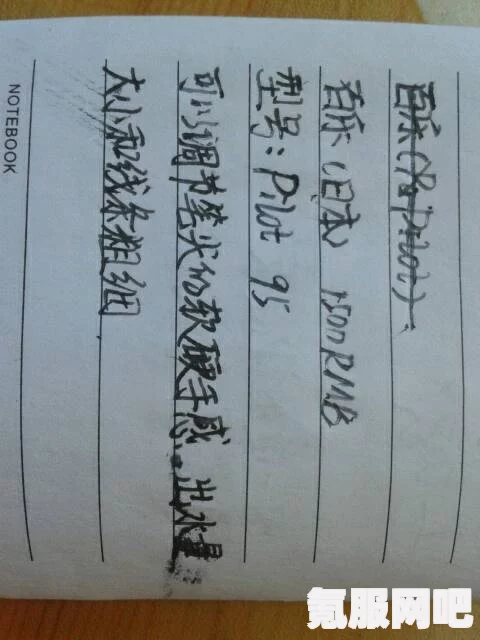 百乐(Pilot)
百乐(日本 1500RMB
型号:Pilot 95
可以调节笔尖的软硬手感.出水量
大小和线条粗细
NOTEBOOK
氪服网吧